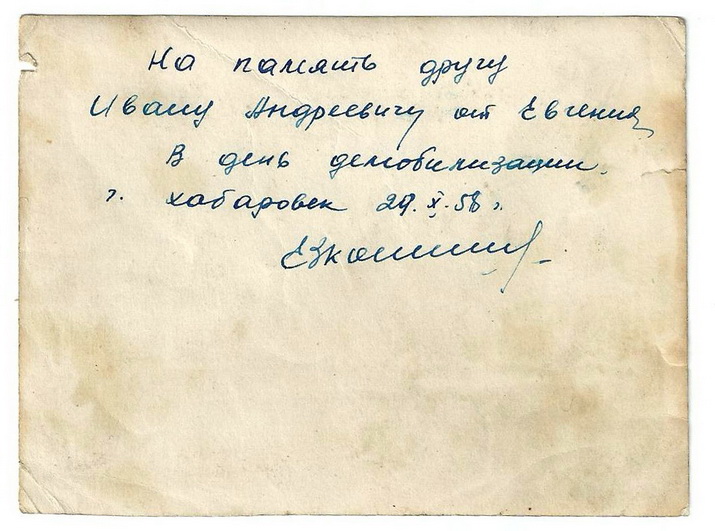 На память другу
Ивану Андреевичу от Евгения
В день демобилизации.
г. Хабаровск 29. X. 58 г.